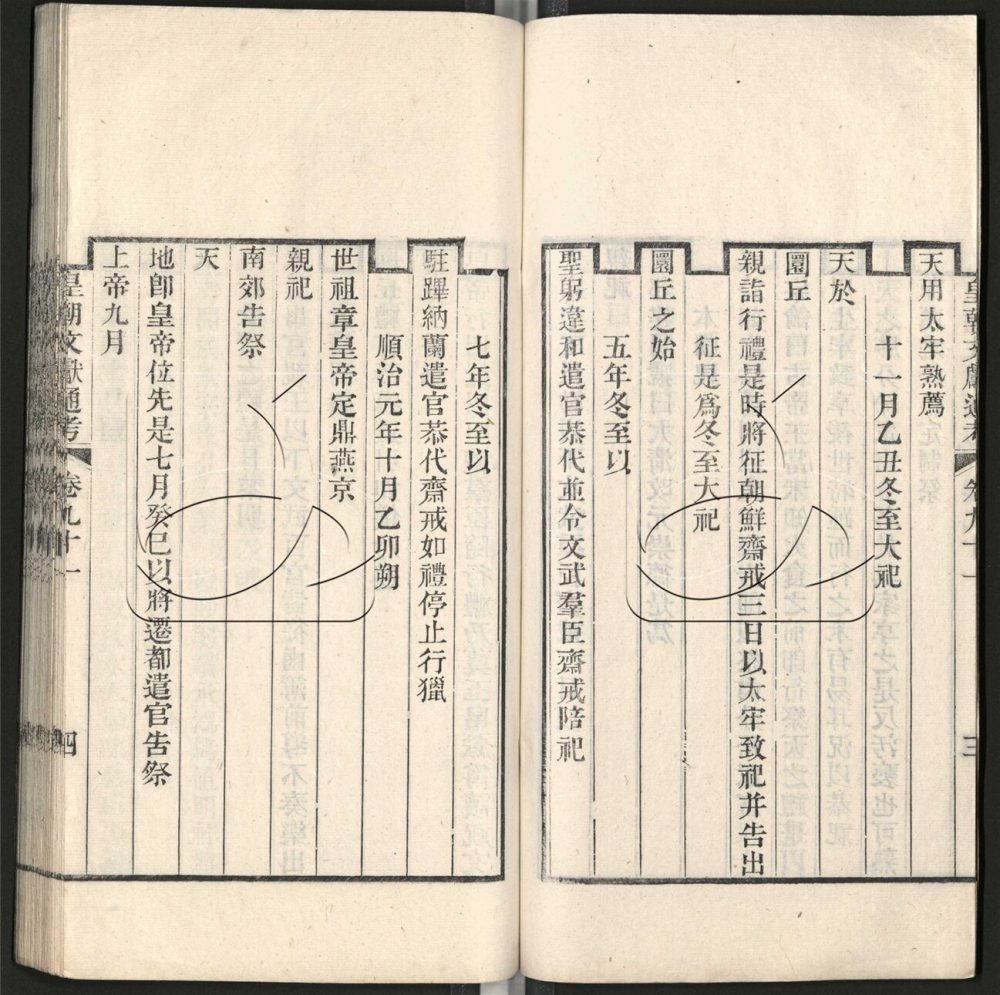 皇朝文獻通考 卷九十一 三
天用太牢熟薦
十一月乙丑冬至大祀
天於
圜丘
親詣行禮是時將征朝鮮齋戒三日以太牢致祀并告出
征是爲冬至大祀
圜丘之始
五年冬至以
聖躬違和遣官恭代並令文武羣臣齋戒陪祀
七年冬至以
駐蹕納蘭遣官恭代齋戒如禮停止行獵
順治元年十月乙卯朔
世祖章皇帝定鼎燕京
親祀
南郊告祭
天
地卽皇帝位先是七月癸巳以將遷都遣官告祭
上帝九月
皇朝文獻通考 卷九十一 四